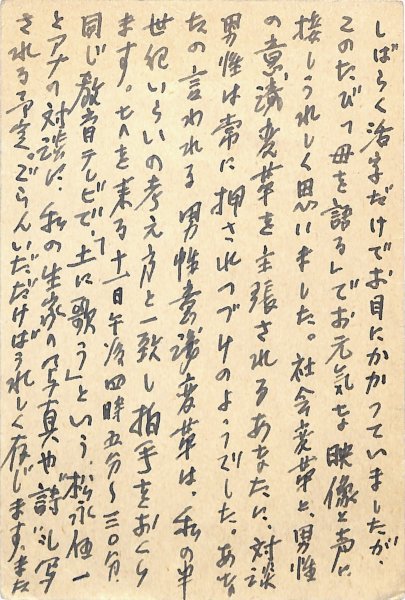 しばらく活字だけでお目にかかっていましたが、
このたび「母を語る」でお元気な映像と声に
接しうれしく思いました。社会変革と、男性
の意識変革を主張されるあなたに、対談
男性は常に押されつづけのようでした。あな
たの言われる男性意識変革は、私の半
世紀いらいの考え方と一致し拍手をおくり
ます。さて来る十一日午後四時五分〜三〇分
同じ教育テレビで、「土に歌う」という、松永伍一
とアナの対談に、私の生家の写真や詩が写
されるる予定。ごらんいただけばうれしく存じます。また